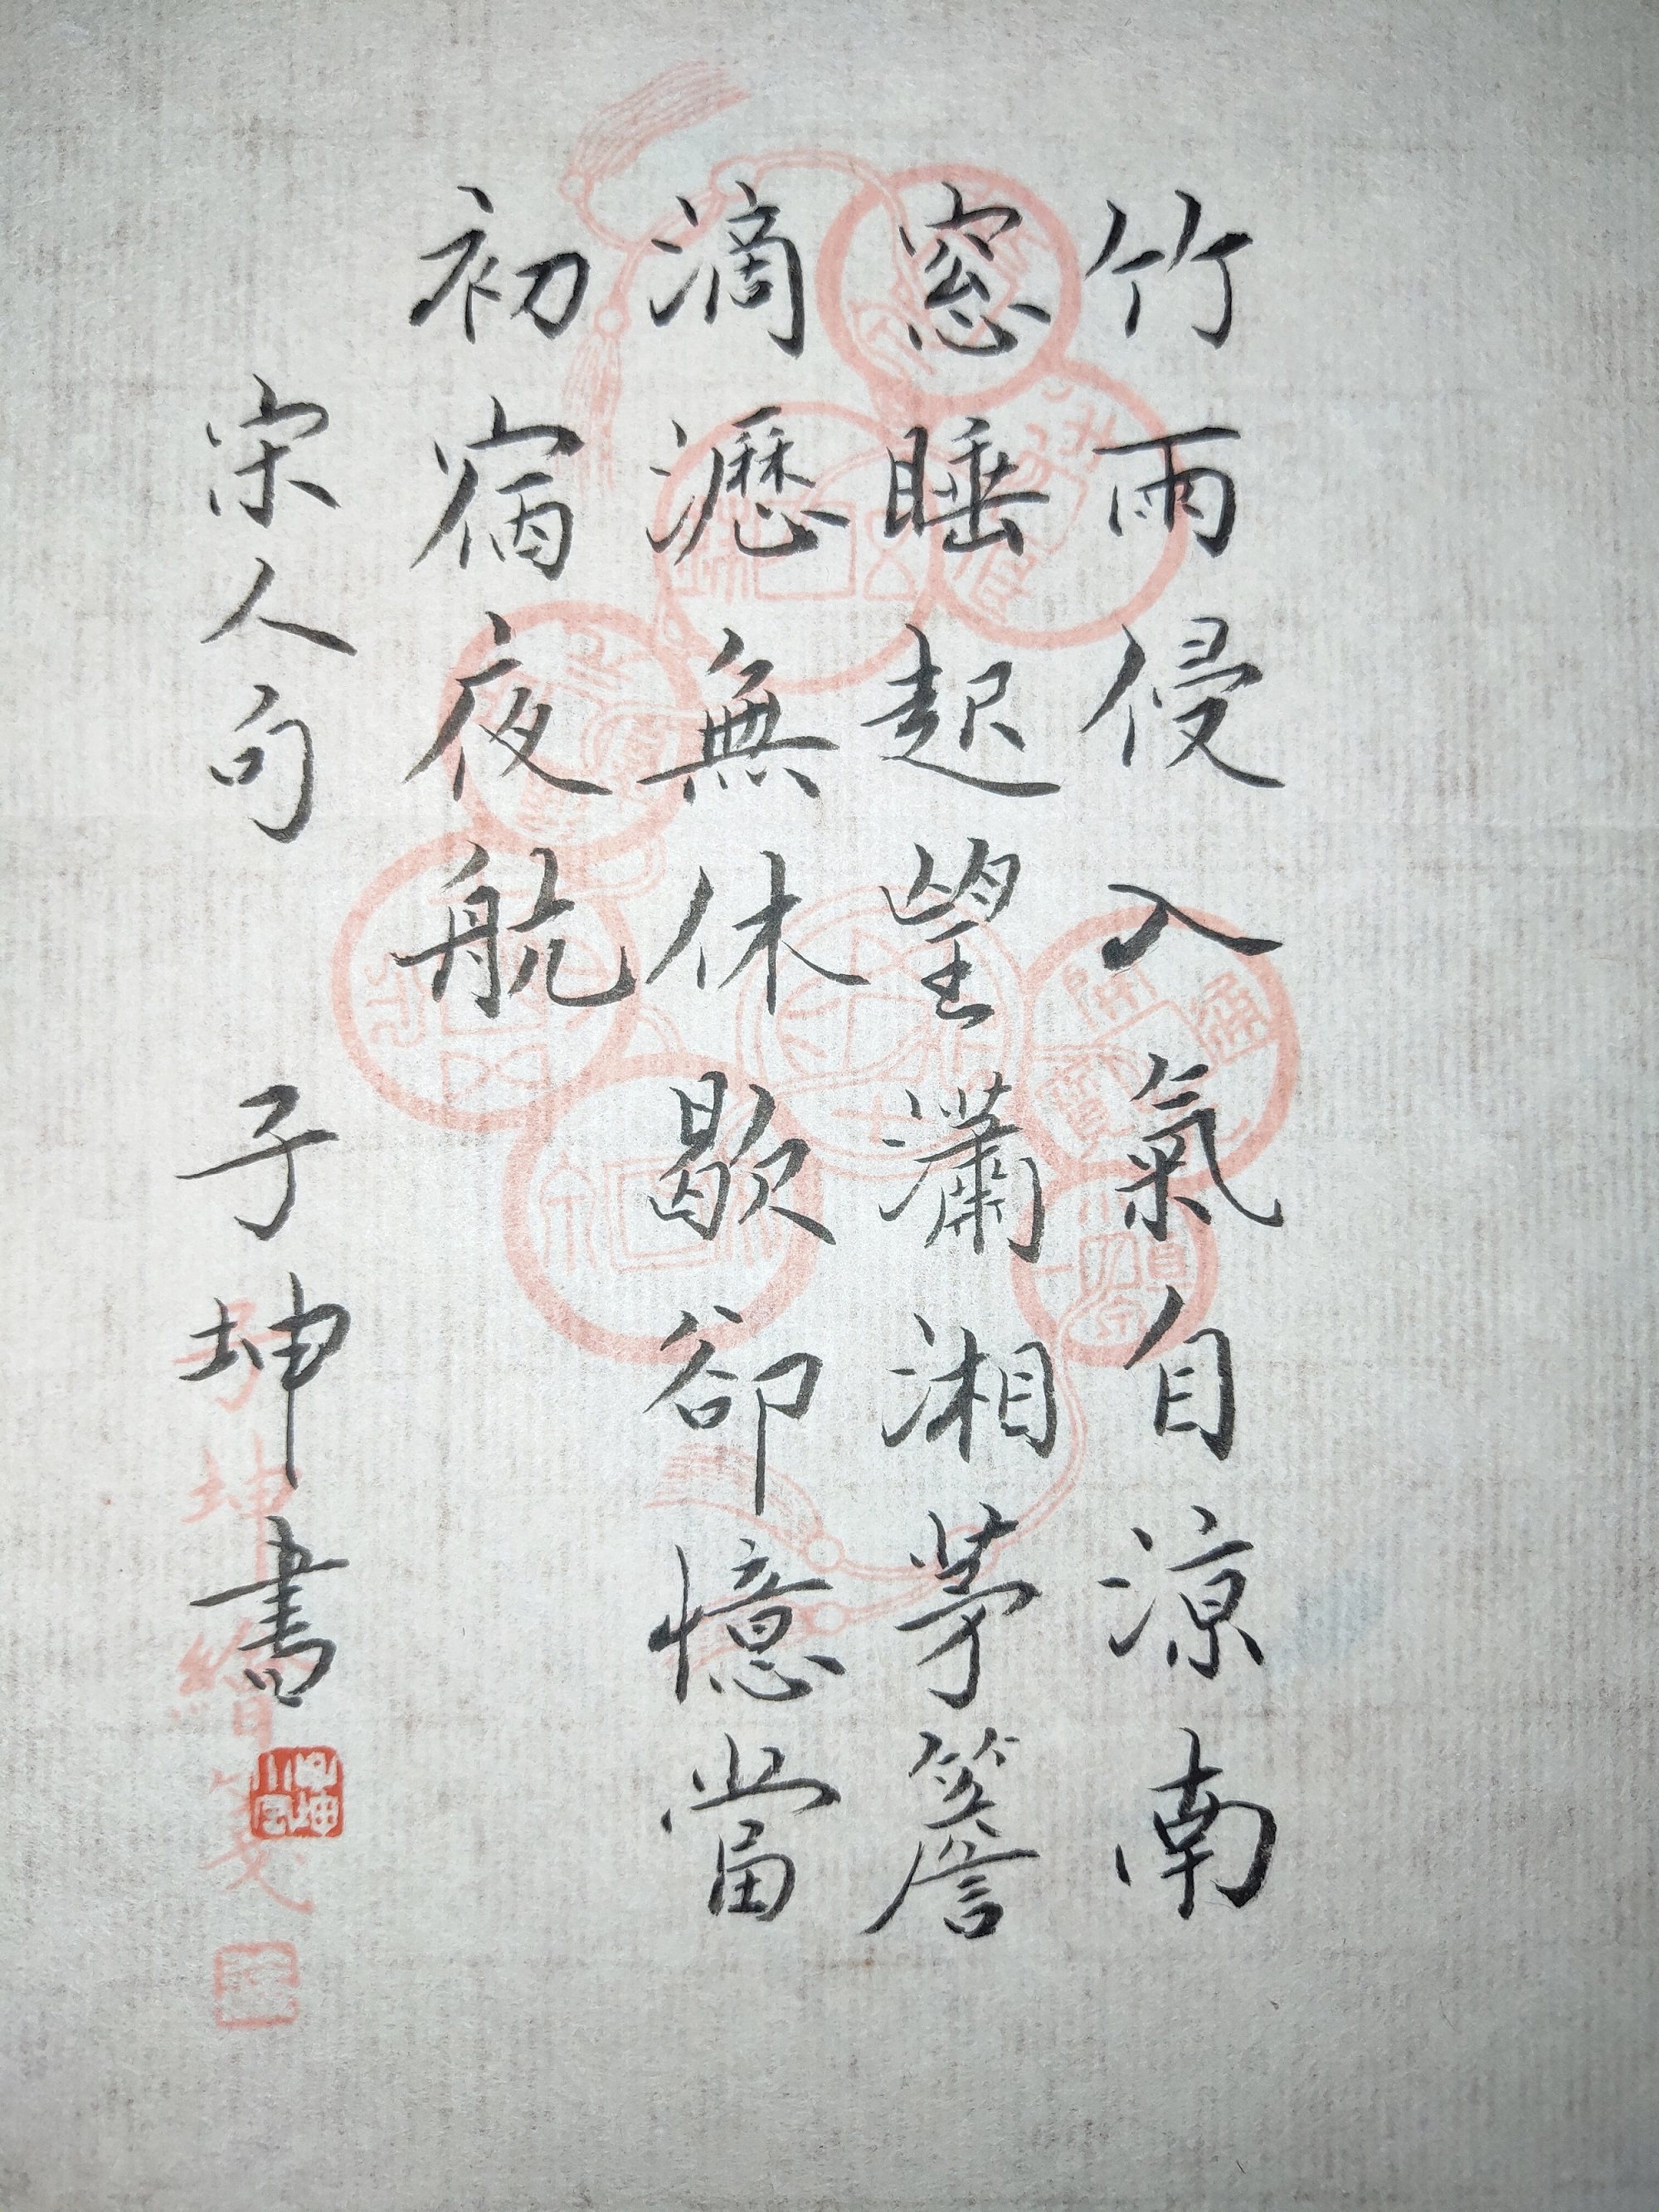 竹雨侵入氣自涼南
窓睡起望瀟湘茅簷
滴瀝無休歇卻憶當
初宿夜航
宋人句 子坤書
子坤繪箋